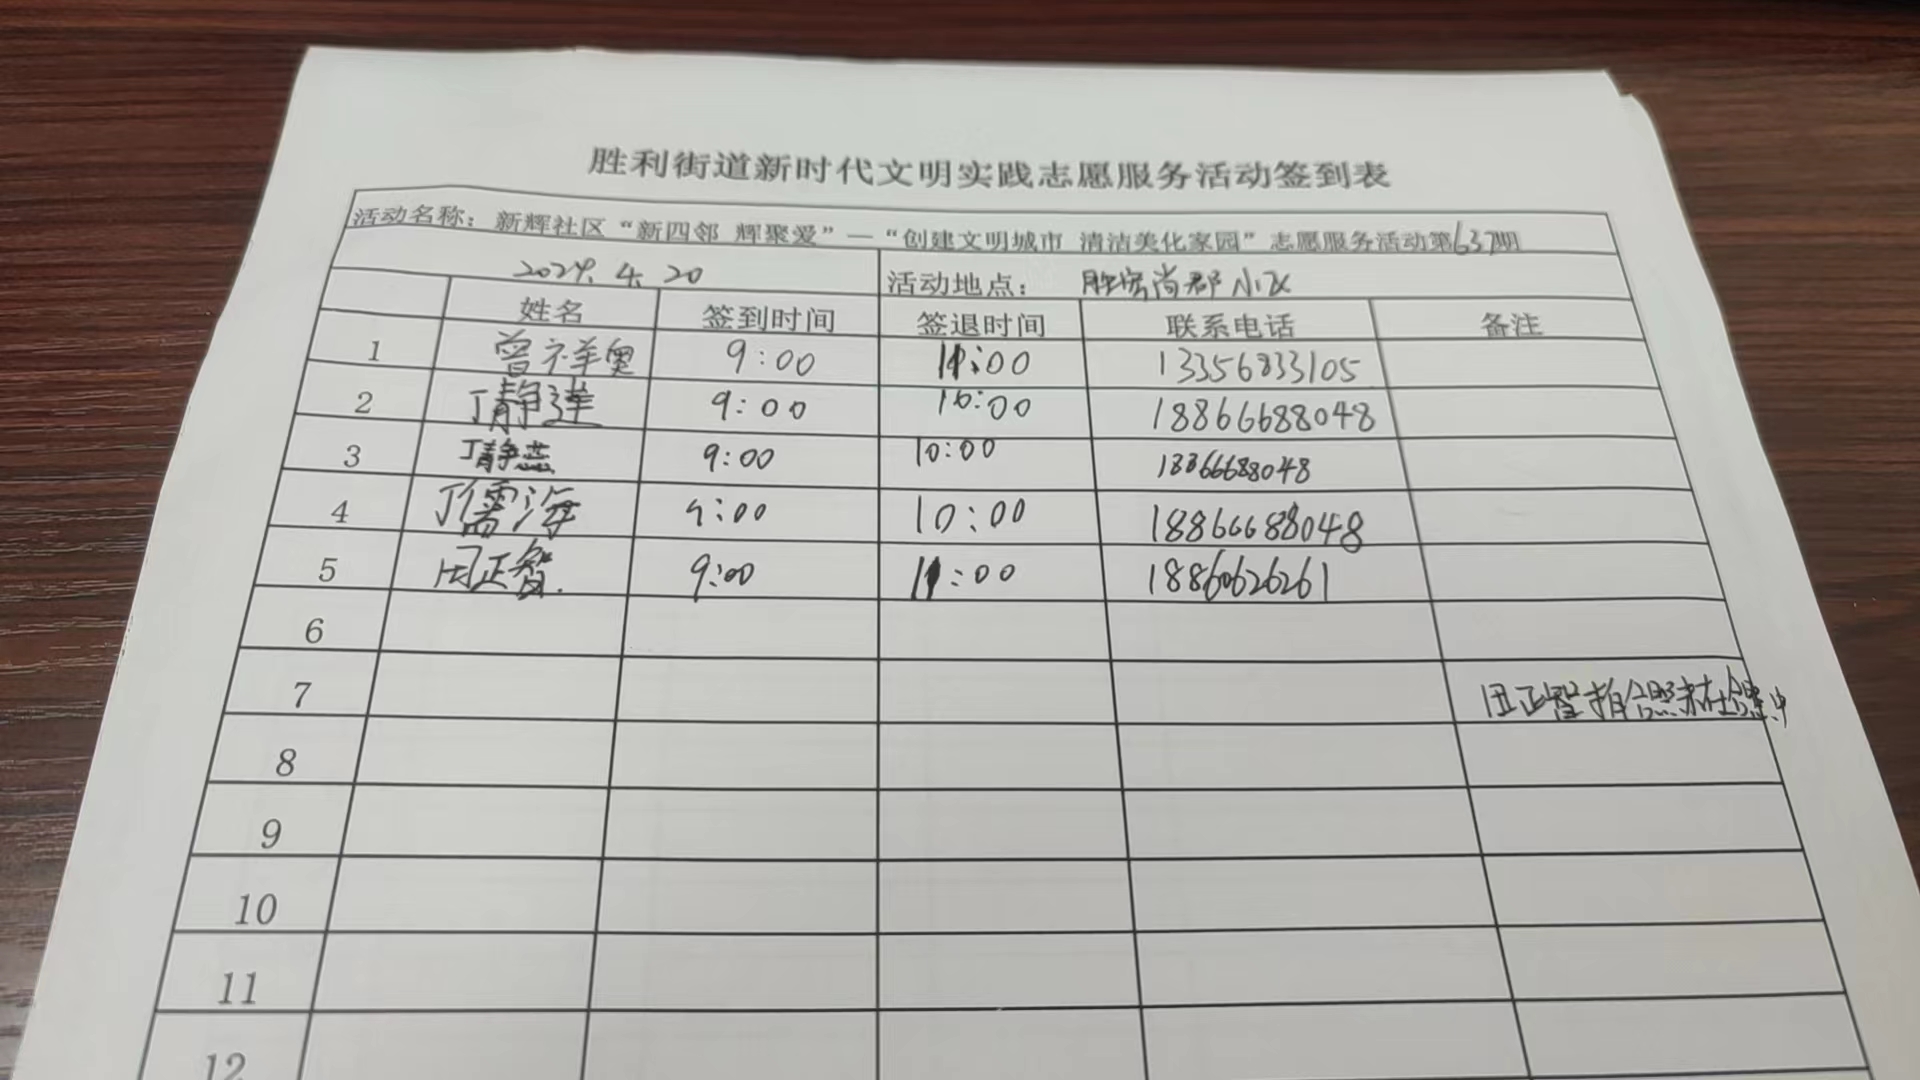 胜利街道新时代文明实践志愿服务活动签到表
活动名称：新辉社区“新四邻 辉聚爱”—“创建文明城市 清洁美化家园”志愿服务活动第637期
2024.4.20 活动地点： 胜宏尚郡小区
姓名 签到时间 签退时间 联系电话 备注
1 曾祥奥 9:00 11:00 13356833105
2 丁静莲 9:00 10:00 18866688048
3 丁静蕊 9:00 10:00 18866688048
4 丁儒海 9:00 10:00 18866688048
5 田正智. 9:00 11:00 18860626261
6
7 田正智拍合照未在合照中
8
9
10
11
12